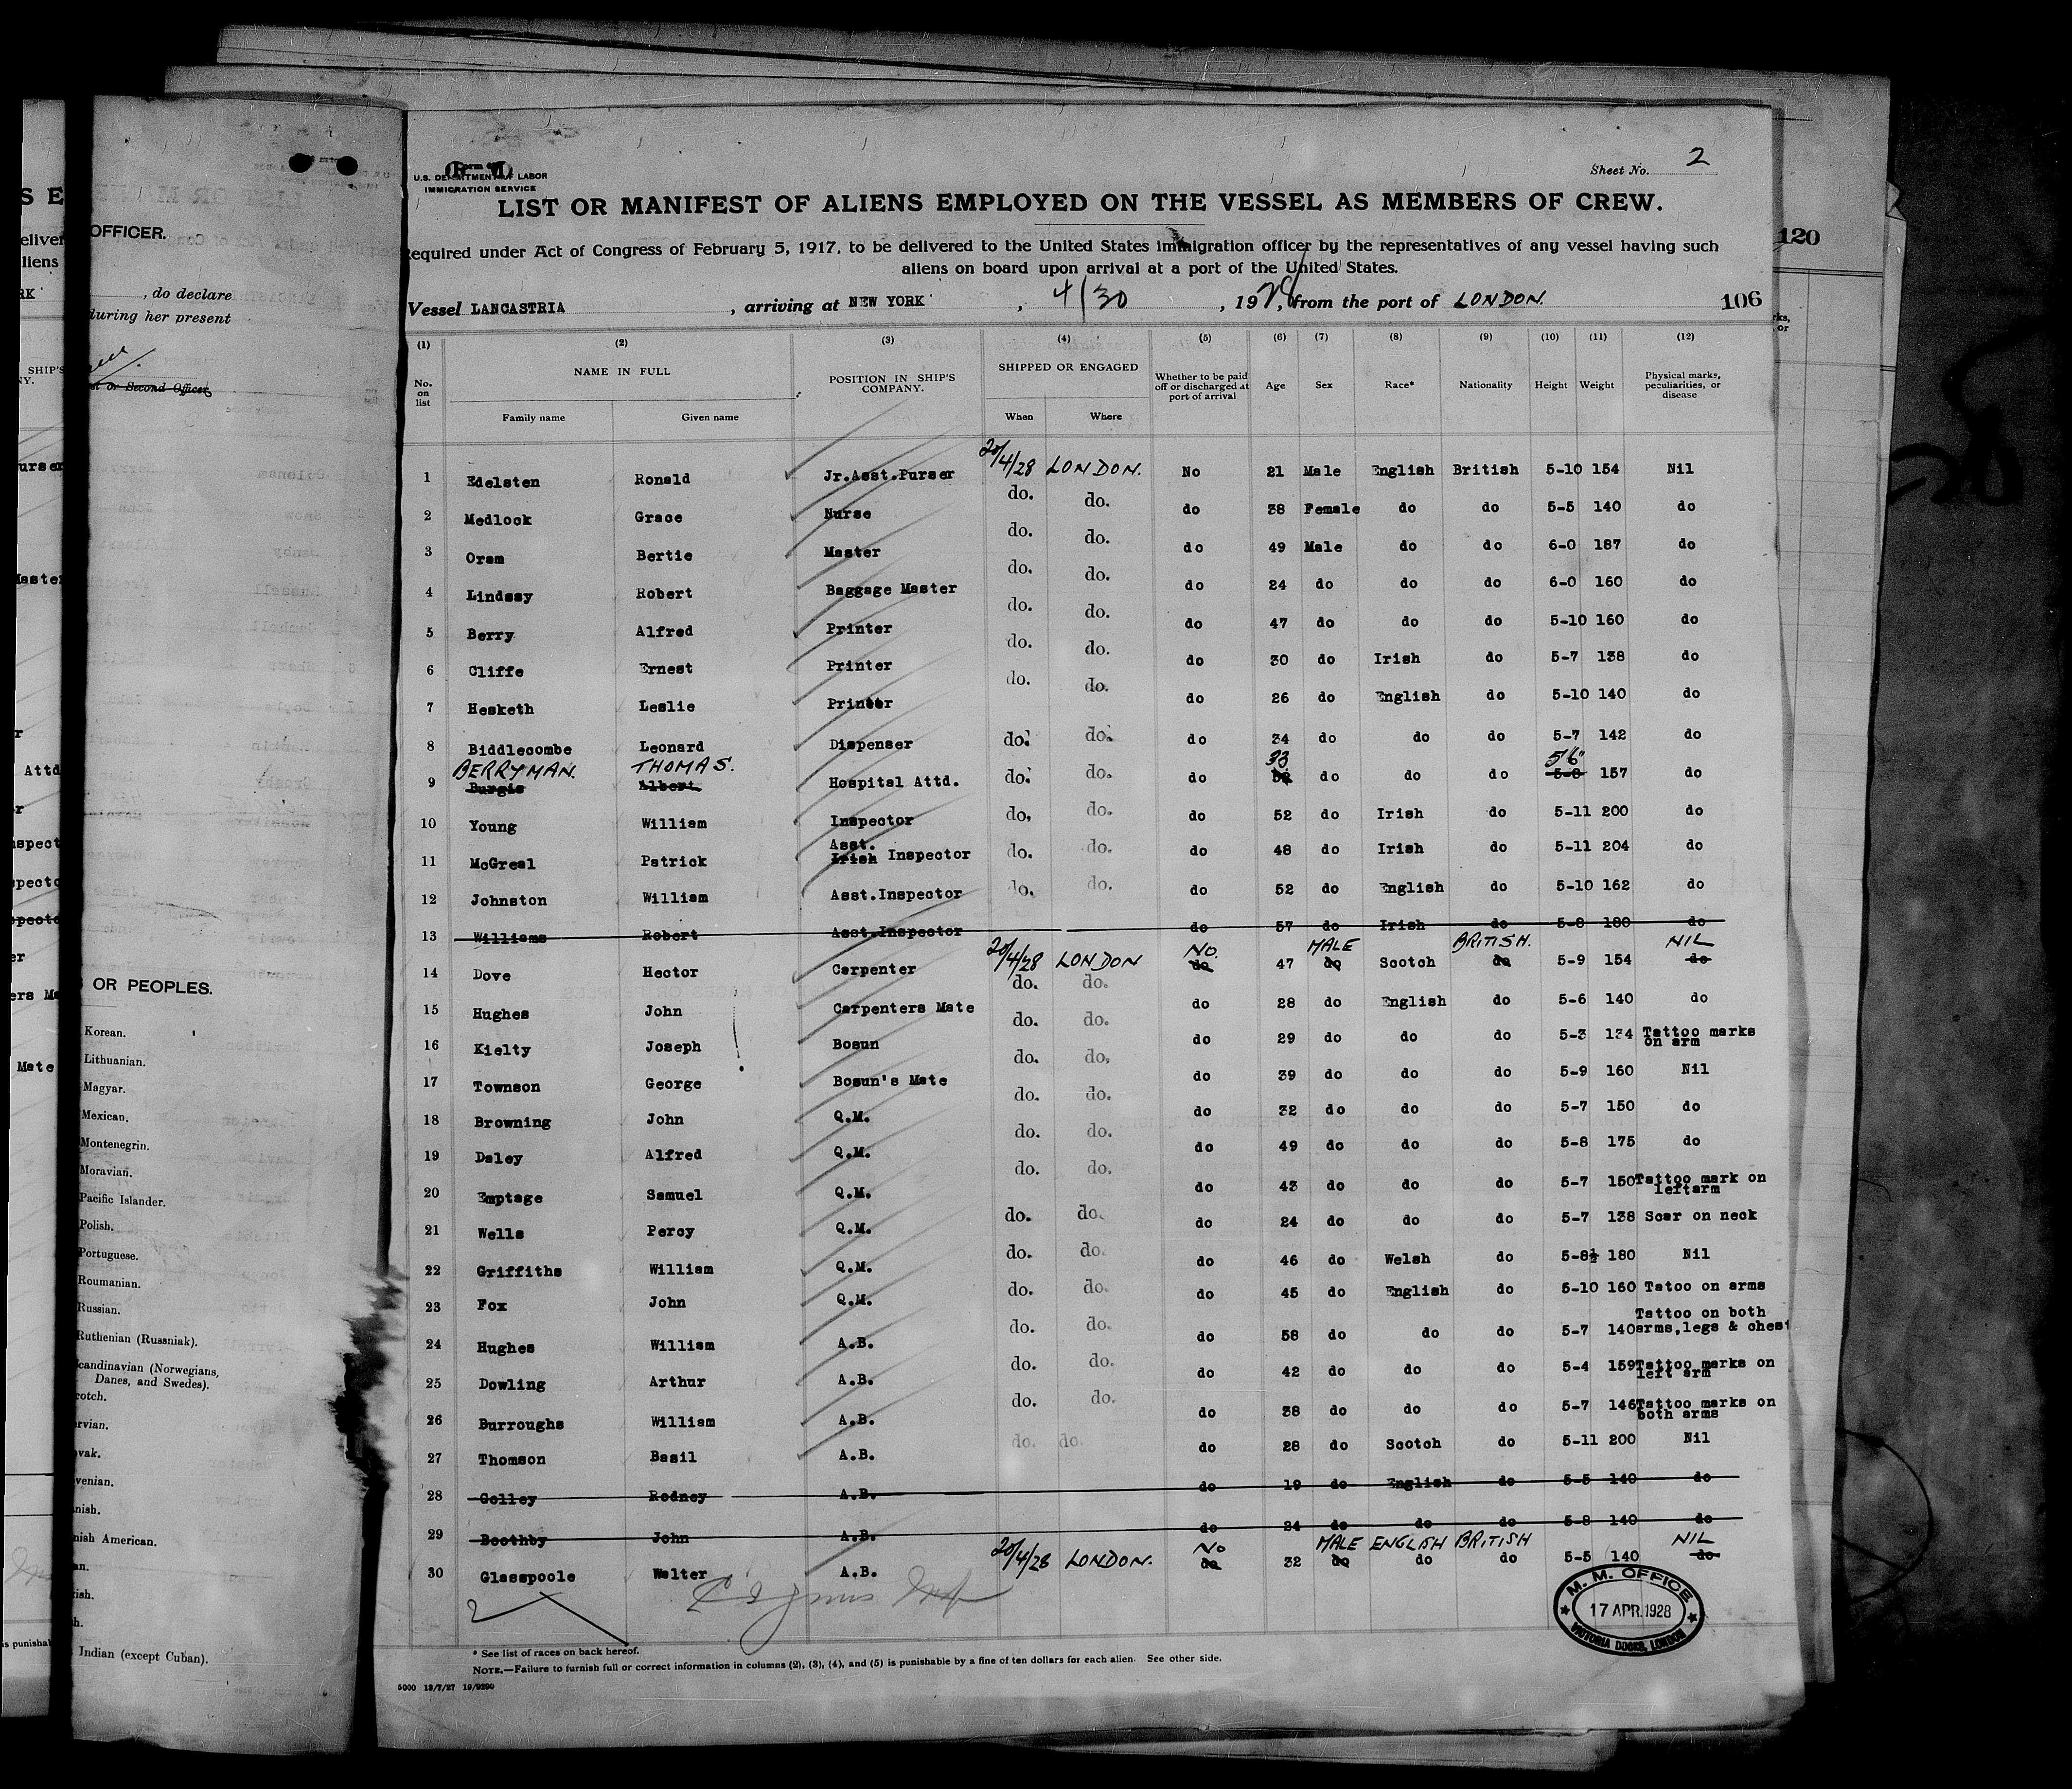 Sheet No. 2
U.S. DEPARTMENT OF LABOR
IMMIGRATION SERVICE
LIST OR MANIFEST OF ALIENS EMPLOYED ON THE VESSEL AS MEMBERS OF CREW.
Required under Act of Congress of February 5, 1917, to be delivered to the United States immigration officer by the representatives of any vessel having such
aliens on board upon arrival at a port of the United States.
120
Vessel LANCASTRIA, arriving at NEW YORK, 4/30, 1928, from the port of LONDON. 106
(1) (2) (3) (4) (5) (6) (7) (8) (9) (10) (11) (12)
No. on list NAME IN FULL Family name Given name POSITION IN SHIP'S COMPANY. SHIPPED OR ENGAGED When Where Whether to be paid off or discharged at port of arrival Age Sex Race* Nationality Height Weight Physical marks, peculiarities, or disease
1 Edelsten Ronald Jr.Asst.Purser 20/4/28 LONDON. No 21 Male English British 5-10 154 Nil
2 Medlock Grace Nurse do. do. do 38 Female do do 5-5 140 do
3 Oram Bertie Master do. do. do 49 Male do do 6-0 187 do
4 Lindsay Robert Baggage Master do. do. do 24 do do do 6-0 160 do
5 Berry Alfred Printer do. do. do 47 do do do 5-10 160 do
6 Cliffe Ernest Printer do. do. do 30 do Irish do 5-7 138 do
7 Hesketh Leslie Printer do. do. do 26 do English do 5-10 140 do
8 Biddlecombe Leonard Dispenser do. do. do 34 do do do 5-7 142 do
BERRYMAN. THOMAS. 33 5'6"
9 Burgis Albert Hospital Attd. do. do. do do do do 5-8 157 do
10 Young William Inspector do. do. do 52 do Irish do 5-11 200 do
11 McGreal Patrick Asst. Irish Inspector do. do. do 48 do Irish do 5-11 204 do
12 Johnston William Asst.Inspector do. do. do 52 do English do 5-10 162 do
13 Williams Robert Asst.Inspector do 57 do Irish do 5-8 180 do
NO. MALE BRITISH. NIL
14 Dove Hector Carpenter 20/4/28 LONDON do 47 do Scotch do 5-9 154 do
15 Hughes John Carpenters Mate do. do. do 28 do English do 5-6 140 do
16 Kielty Joseph Bosun do. do. do 29 do do do 5-3 134 Tattoo marks on arm
17 Townson George Bosun's Mate do. do. do 39 do do do 5-9 160 Nil
18 Browning John Q.M. do. do. do 32 do do do 5-7 150 do
19 Daley Alfred Q.M. do. do. do 49 do do do 5-8 175 do
20 Emptage Samuel Q.M. do. do. do 43 do do do 5-7 150 Tattoo mark on leftarm
21 Wells Percy Q.M. do. do. do 24 do do do 5-7 138 Scar on neck
22 Griffiths William Q.M. do. do. do 46 do Welsh do 5-8½ 180 Nil
23 Fox John Q.M. do. do. do 45 do English do 5-10 160 Tatoo on arms
24 Hughes William A.B. do. do. do 58 do do do 5-7 140 Tattoo on both arms,legs & chest
25 Dowling Arthur A.B. do. do. do 42 do do do 5-4 159 Tattoo marks on left arm
26 Burroughs William A.B. do. do. do 38 do do do 5-7 146 Tattoo marks on both arms
27 Thomson Basil A.B. do. do. do 28 do Scotch do 5-11 200 Nil
28 Golley Rodney A.B. do 19 do English do 5-5 140 do
29 Boothby John A.B. do 24 do do do 5-8 140 do
No MALE ENGLISH BRITISH NIL
30 Glasspoole Walter A.B. 20/4/28 LONDON. do 32 do do do 5-5 140 do
M. M. OFFICE
17 APR. 1928
VICTORIA DOCKS, LONDON
* See list of races on back hereof.
NOTE.—Failure to furnish full or correct information in columns (2), (3), (4), and (5) is punishable by a fine of ten dollars for each alien. See other side.
5000 13/7/27 19/9290
OFFICER.
, do declare
during her present
or Second Officer
OR PEOPLES.
Korean.
Lithuanian.
Magyar.
Mexican.
Montenegrin.
Moravian.
Pacific Islander.
Polish.
Portuguese.
Roumanian.
Russian.
Ruthenian (Russniak).
Scandinavian (Norwegians,
Danes, and Swedes).
Indian (except Cuban).